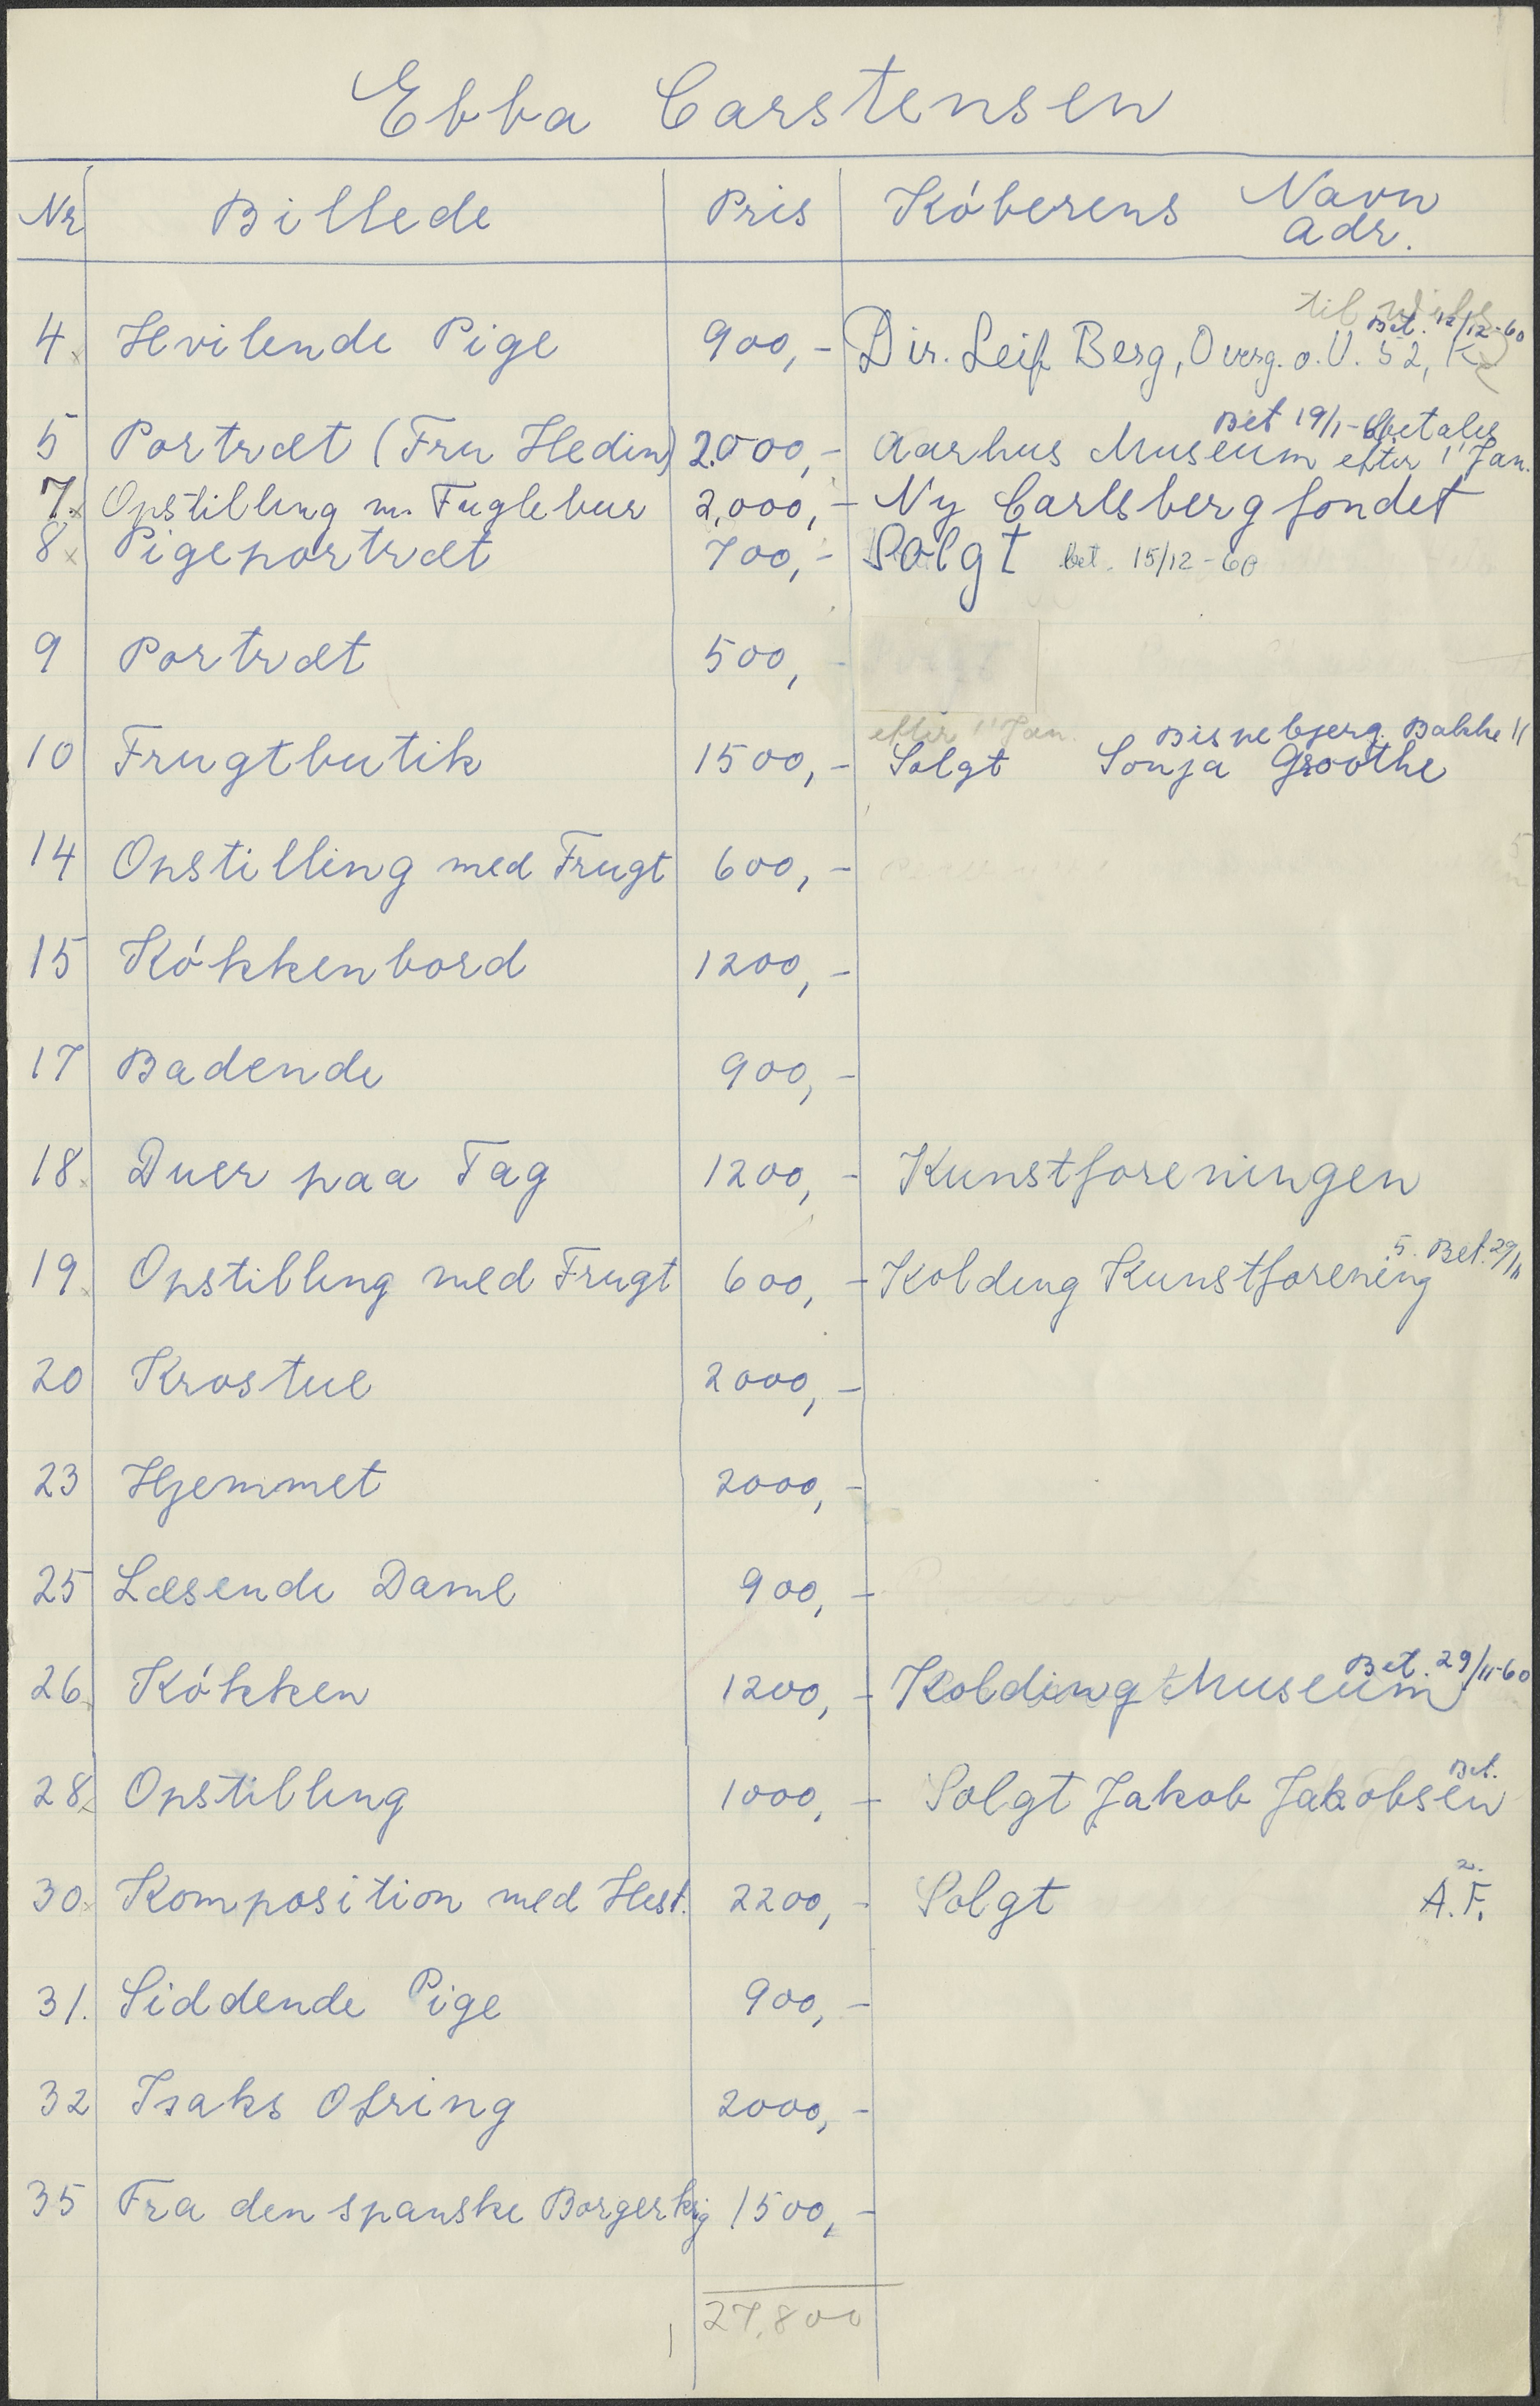 Ebba Carstensen
Nr Billede Pris Köberens Navn
Adr.
til
Bet. 12/12-60
4 Hvilende Pige 900,- Dir. Leif Berg, Overg. o. V. 52, K
Bet 19/1- betales
5 Portræt (Fru Hedin) 2.000,- Aarhus Museum efter 1' Jan.
7. Opstilling m. Fuglebur 2,000,- Ny Carlsbergfondet
8 Pigeportræt 700,- Solgt bet. 15/12-60
9 Portræt 500,-
efter 1' Jan. Bisnebjerg Bakke 11
10 Frugtbutik 1500,- Solgt Sonja Groothe
14 Opstilling med Frugt 600,-
15 Kókkenbord 1200,-
17 Badende 900,-
18. Duer paa Tag 1200,- Kunstforeningen
5. Bet. 29/11
19. Opstilling med Frugt 600,- Kolding Kunstforening
20 Krostue 2000,-
23 Hjemmet 2000,-
25 Læsende Dame 900,-
Bet. 29/11-60
26. Kókken 1200,- Kolding Museum
Bet.
28. Opstilling 1000,- Solgt Jakob Jakobsen
2.
30. Komposition med Hest. 2200,- Solgt A.F.
31. Siddende Pige 900,-
32 Isaks Ofring 2000,-
35 Fra den spanske Borgerkrig 1500,-
27.800